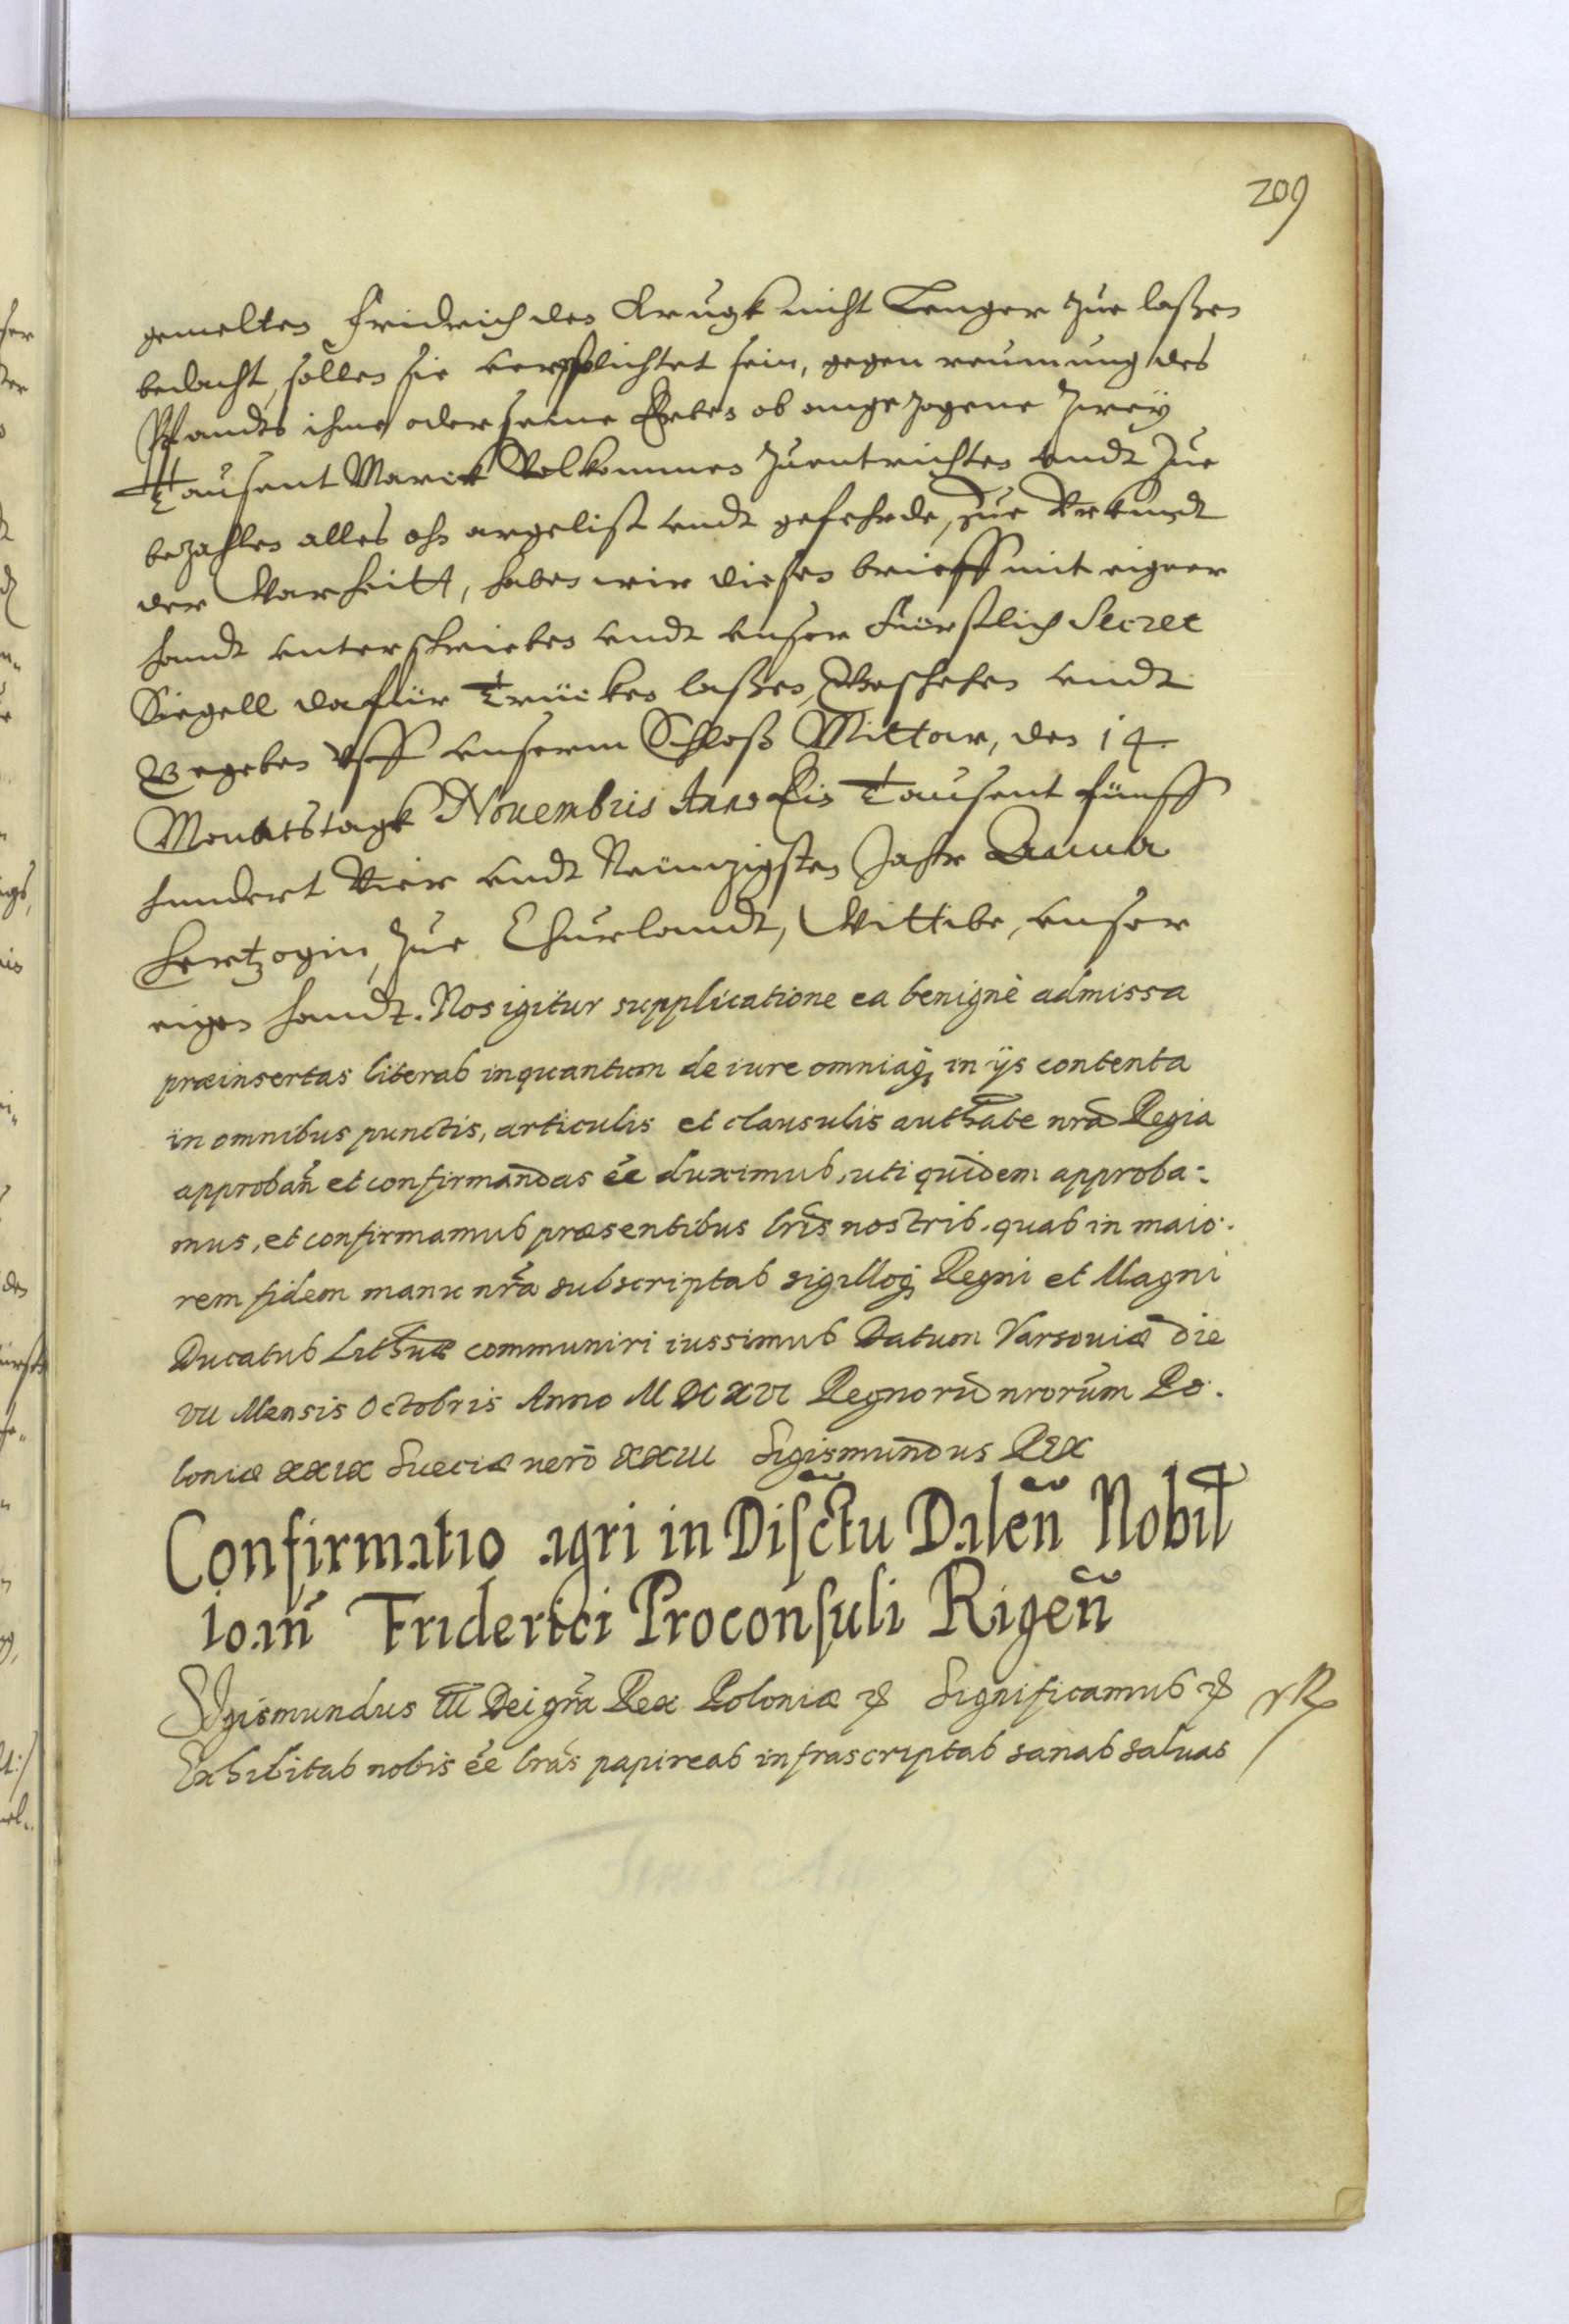 209
gemelten Fridrich den Krugk nicht Lenger zue laßen
bedacht, sollen sie verpflichtet sein, gegen reumung des
Pfandes ihme oder seine Erben ob angezogene Zwey
Tausent Marck Volkommen zuentrichten vndt zue
bezahlen alles ohn argelist vndt gefehrde, zue Vrkundt
der Warheitt, haben wir diesen brieff mit eigner
handt vnterschrieben vndt vnser Fürstlich Secret
Siegell dafür Trücken laßen, Geschehen vndt
Gegeben vff vnserm Schloß Mittaw, den 14
Monatstagk Nouembris Anno Ein Tausent fünff
hundert Vier vndt Neünzigsten Jahr Anna
Hertzogin, zue Churlandt, Wittibe, vnser
eigen handt. Nos igitur supplicatione ea benignè admissa
præinsertas literas inquantum de iure omniaq; in ijs contenta
in omnibus punctis, articulis et clausulis authate nra Regia
approban et confirmandas ee duximus, uti quidem approba-
mus, et confirmamus præsentibus lris nostris. quas in maio-
rem fidem manu nra subscriptas sigilloq; Regni et Magni
Ducatus Lithuæ communiri iussimus Datum Varsouiæ die
VII Mensis Octobris Anno M DC XVI Regnorū nrorum Po-
loniæ XXIX Sueciæ uero XXIII Sigismundus REX
Confirmatio agri in Disctu Dalen Nobil
Ioan Friderici Proconsuli Rigen
SIgismundus III Dei gra Rex Poloniæ &c Significamus &c
Exhibitas nobis ee lras papireas infrascriptas sanas saluas